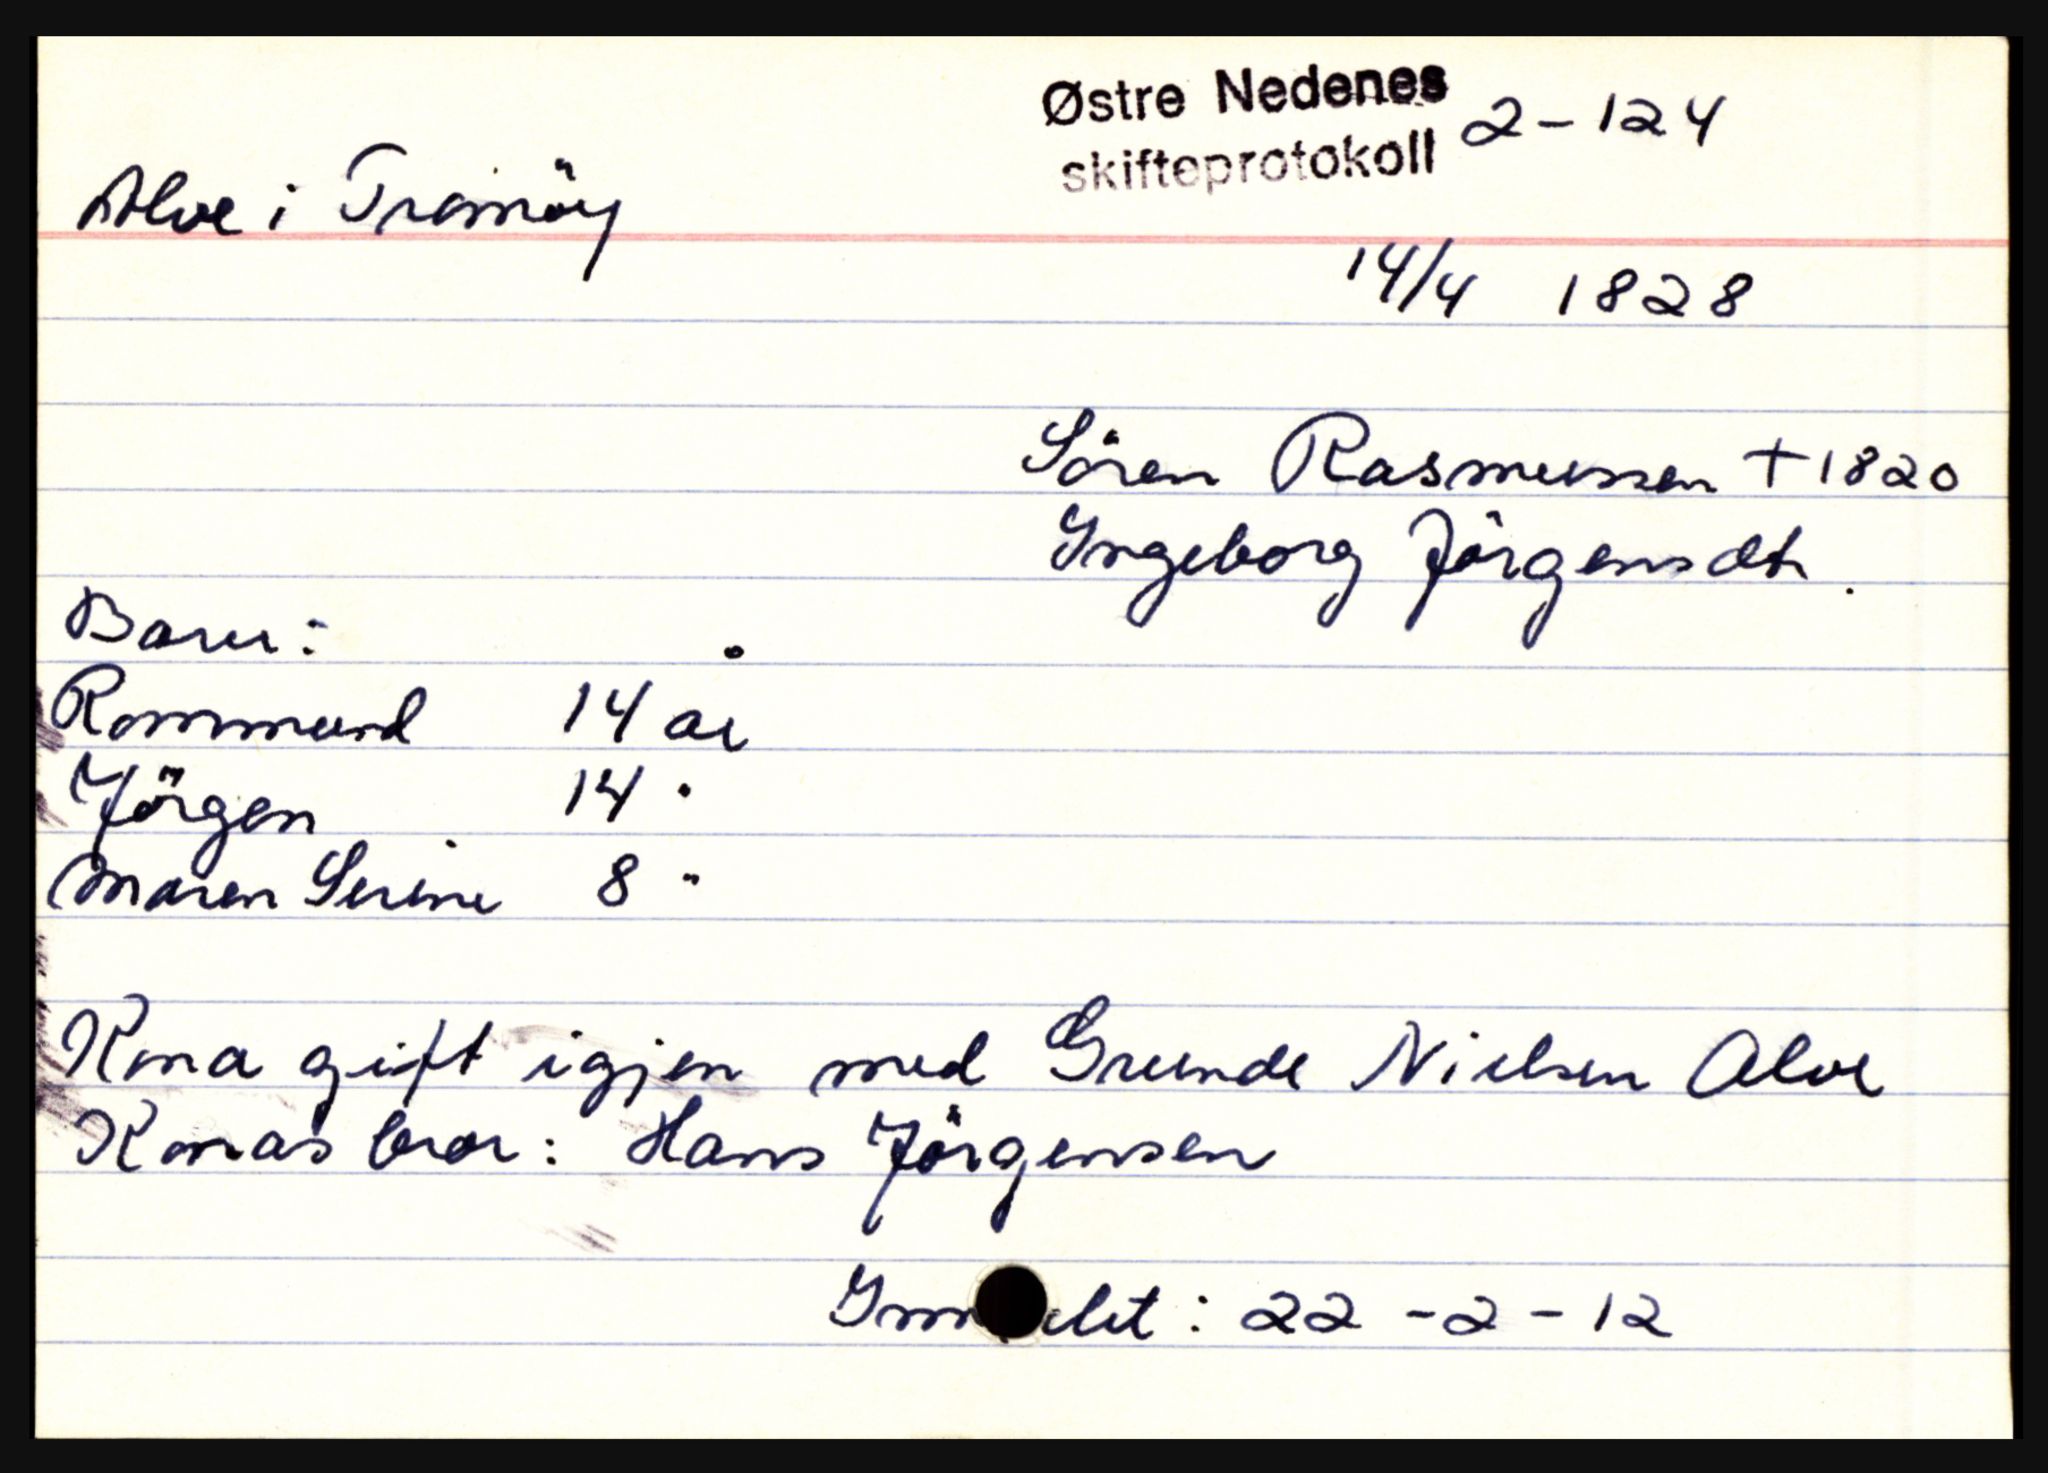 Østre Nedenes
skifteprotokoll 2-124
Alve i Tromöy
14/4 1828
Sören Rasmussen +1820
Ingeborg Jörgensdt.
Barn:
Rommund 14 år
Jörgen 14 "
Maren Serine 8 "
Kona gift igjen med Grunde Nielsen Alve
Konas bror: Hans Jörgensen
: 22-2-12